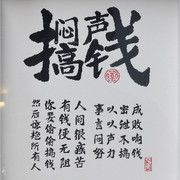 闷声搞钱
事以密成
言以泄败
闷声不响
努力搞钱
人间很疾苦
有钱便无阻
你要偷偷搞钱
然后惊艳所有人